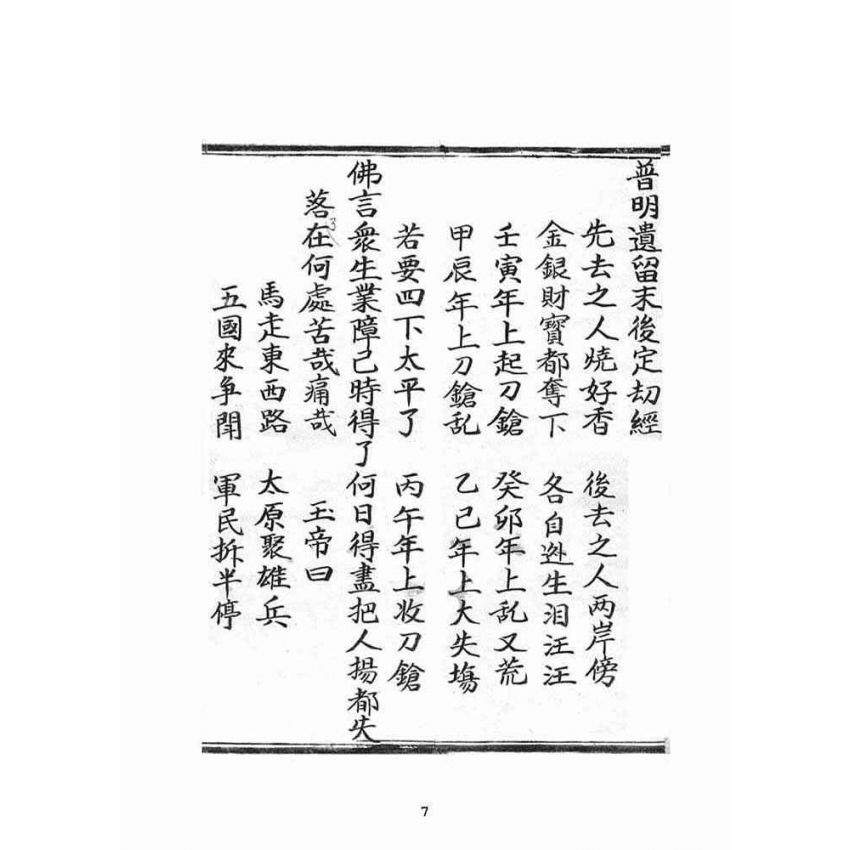 普明遺留末後定刧經
先去之人燒好香 後去之人两岸傍
金銀財寶都奪下 各自逃生泪汪汪
壬寅年上起刀鎗 癸卯年上乱又荒
甲辰年上刀鎗乱 乙巳年上大失塲
若要四下太平了 丙午年上收刀鎗
佛言衆生業障已時得了何日得盡把人揚都失
落在何處苦哉痛哉 玉帝曰
馬走東西路 太原聚雄兵
五國來争閙 軍民拆半停
7